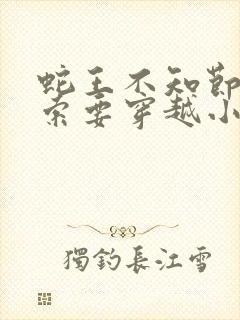 蛇王不知節
索要穿越小
獨釣長江雪